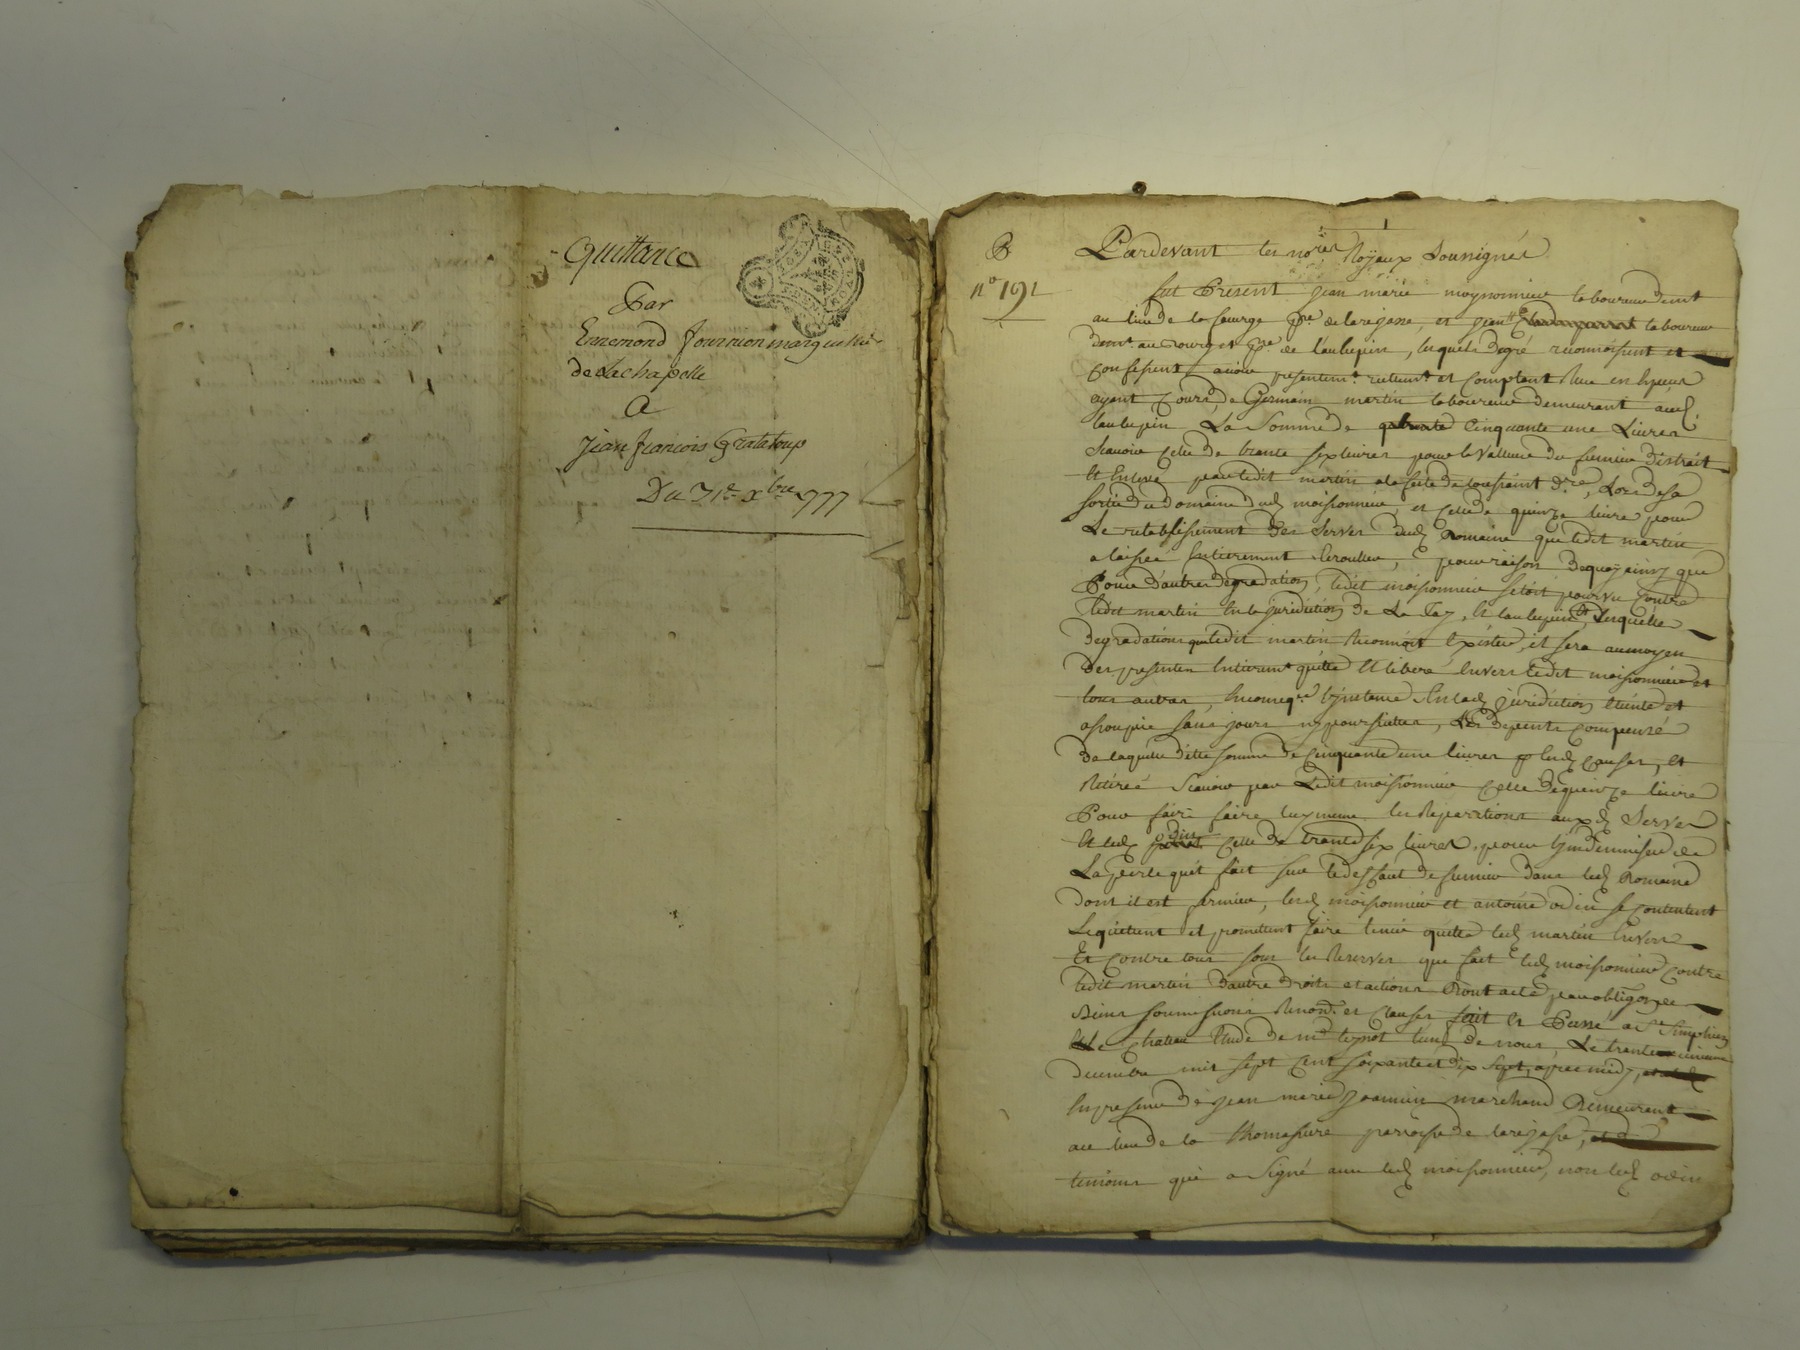 Quittance
Par
Ennemond fournion marguillier
de Lachapelle
A
Jean francois Grataloup
Du 31e Xbre 1777
B
n° 191
Pardevant les nores Royaux Soussignés
fut Present jean marie moyssonnier laboureur demt
au lieu de la faurge pse de larajasse, et jean laboureur
demt au bourg et pse de laubepin, lesquels de gré reconnoissent et
confessent avoir presentemt reellemt et comptant Reçu en especes
ayant Cours, de Germain martin laboureur demeurant aud
laubepin La Somme de Cinquante une Livres
Scavoir Celle de trente six livres pour la valleur du fumier distrait
Et Enlevé par ledit martin a la feste de toussaint dre, Lors de sa
sortie du domaine dud moissonnier, et Celle de quinze livre pour
Le retablissement des Serves dud Domaine que ledit martin
a laissée Entierement Ecroulée, pour raison de quoy ainsy que
Pour d'autres degradations, ledit moissonnier s'etoit pourvu contre
ledit martin En la juridiction de La Fay, et laubepin, Lesquelles
degradations que ledit martin Reconnoit Exister, il sera au moyen
des presentes Entieremt quitte Et liberé Envers ledit moissonnier et
tous autres, En conseqce L'instance En lad juridiction Eteinte et
assoupie sans jours ny poursuittes, Les depents Compensé
de laquelle ditte somme de Cinquante une livres p lesd Causes, Et
Retirée Scavoir par Ledit moissonnier Celle de quinze livre
Pour faire faire luy meme les Reparations auxd Serves
Et led odin Celle de trente six livres pour L'indemniser de
La perte qu'il fait sur le deffaut de fumier dans led Domaine
dont il est fermier, lesd moissonnier et antoine odin se contentent
Le quittent et promettent faire tenir quitte led martin Envers
Et Contre tous sous les Reserves que fait led moissonnier contre
ledit martin d'autre droits et actions Dont acte par obligon de
Biens soumissions Renonon et Clauses fait et Passé a St Simphorien
Le Chateau Etude de me l'un de nous, Le trente unieme
decembre mil sept Cent soixante et dix sept, apres midy,
En presence de jean marie marchand Demeurant
au lieu de la thomassure paroisse de larajasse,
temoins qui a Signé avec led moissonnier, non led odin